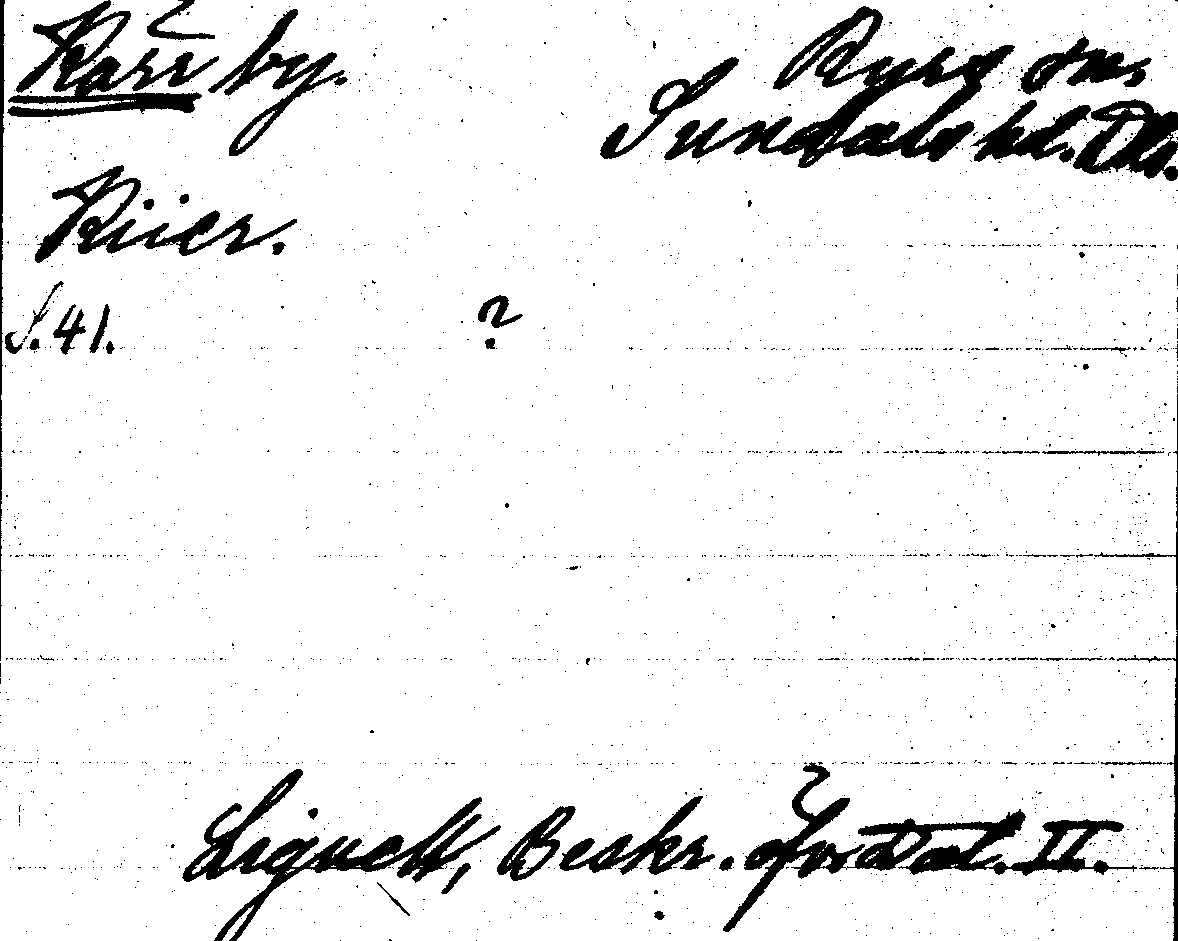 Kärr by. Ryrs sn.
Sundals hd. Dls.
Kiier.
S. 41. ?
Lignell, Beskr. öfv. Dal. II.